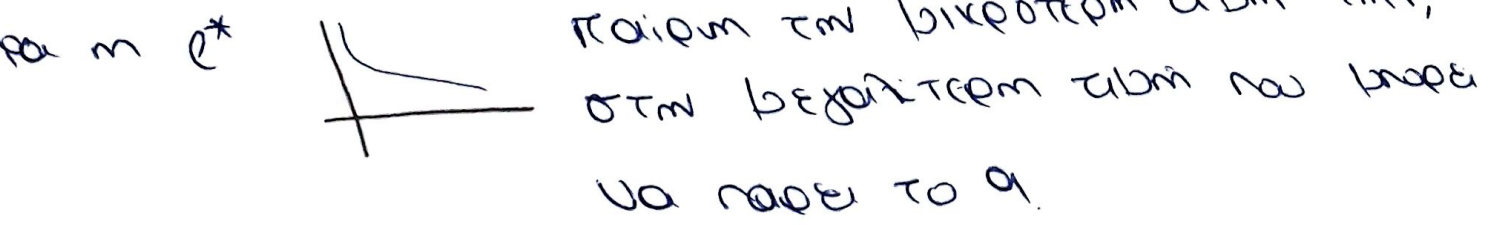 ρα η ρ*
παίρνη την μικρότερη τιμή της,
στην μεγαλύτερη τιμή που μπορεί
να παρει το q.